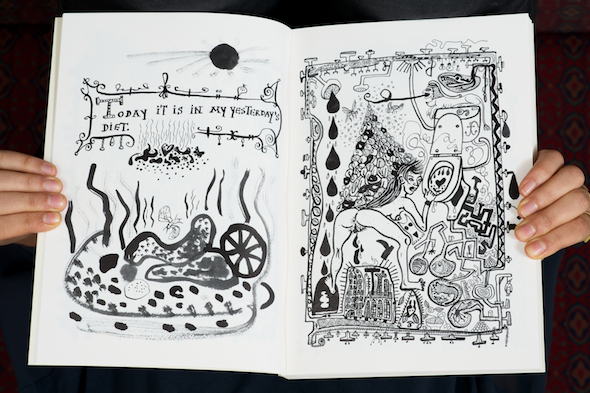 TODAY IT IS IN MY YESTERDAY'S
DIET.